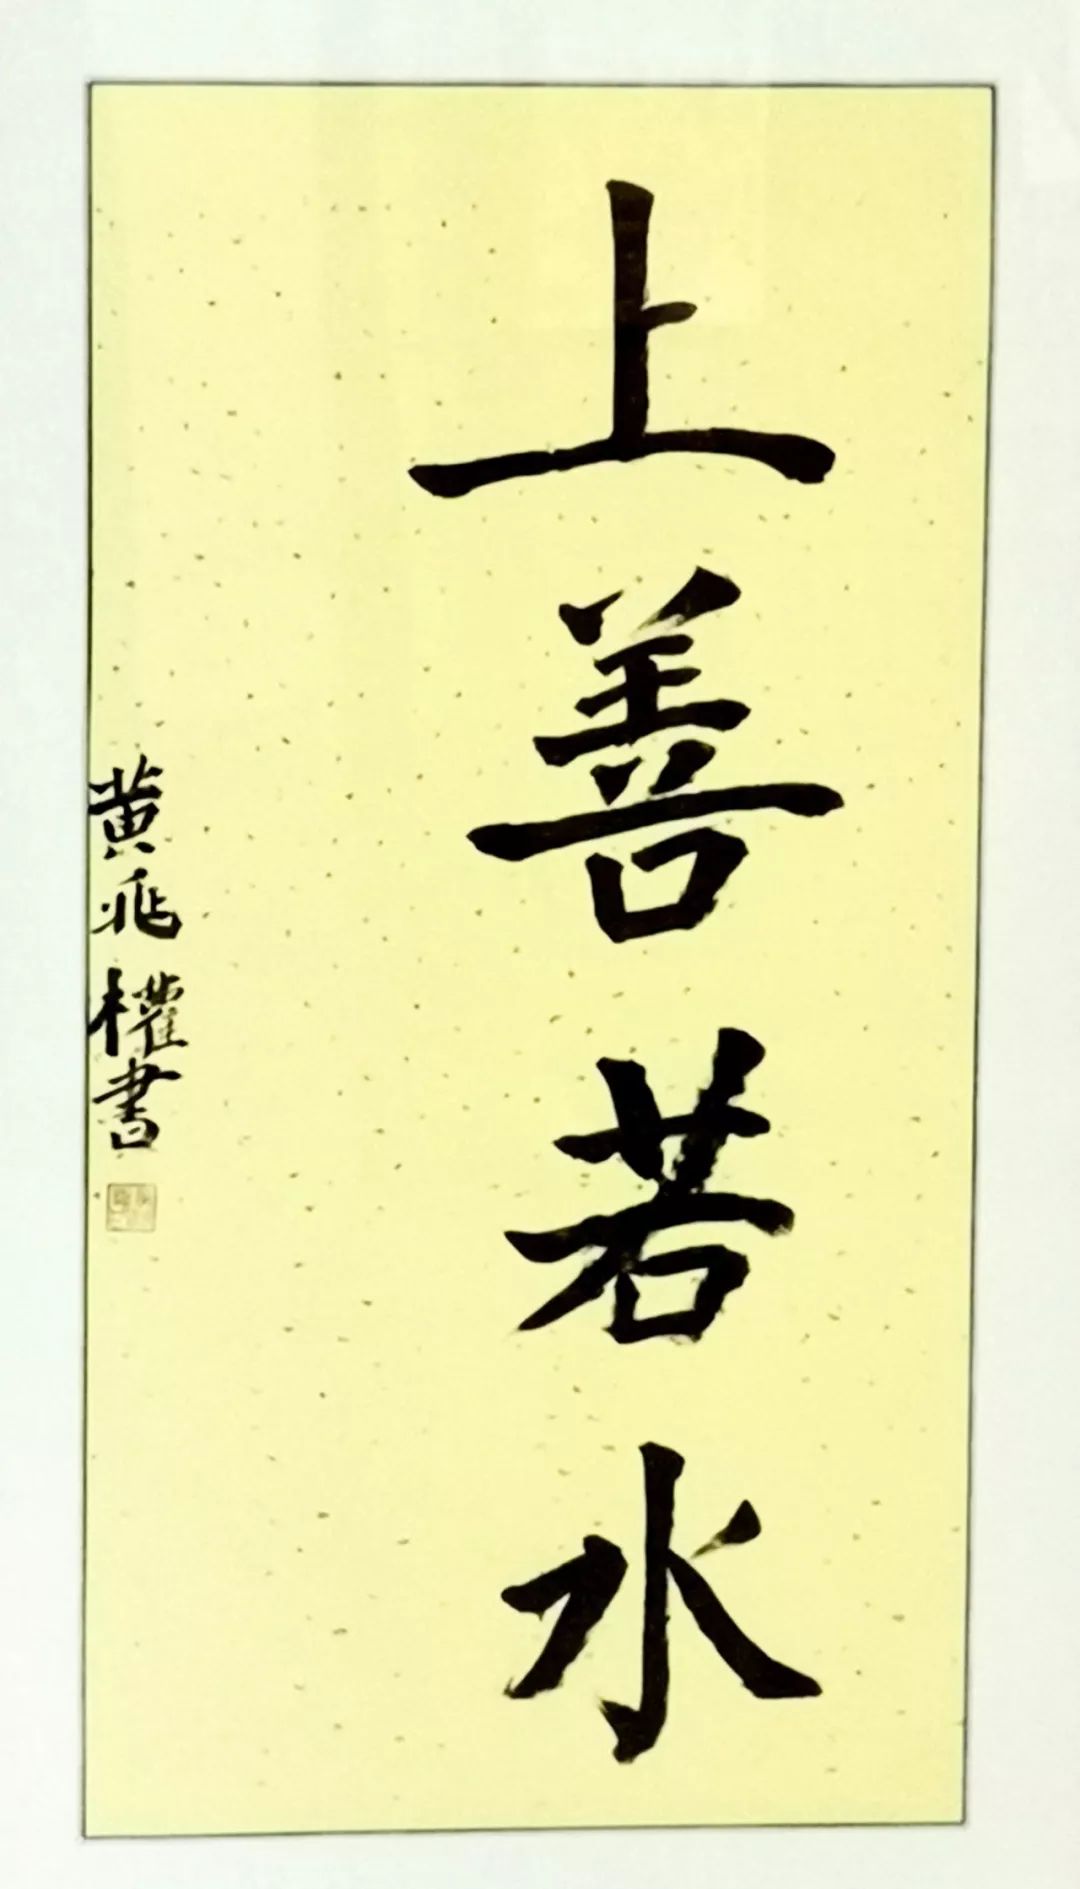 上善若水
黄兆權書